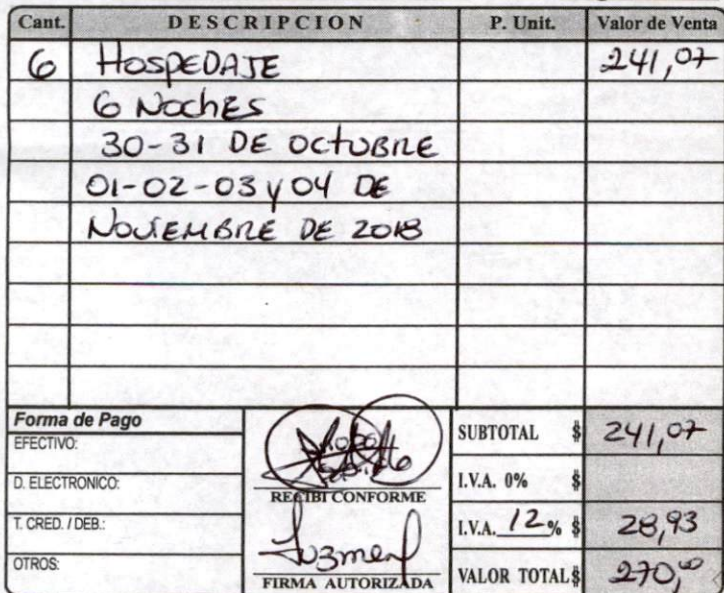 Cant. DESCRIPCION P. Unit. Valor de Venta
6 HOSPEDAJE 241,07
6 NOCHES
30-31 DE OCTUBRE
01-02-03 Y 04 DE
NOVIEMBRE DE 2018
Forma de Pago
EFECTIVO:
D. ELECTRONICO:
T. CRED. / DEB.:
OTROS:
RECIBI CONFORME
FIRMA AUTORIZADA
SUBTOTAL $ 241,07
I.V.A. 0% $
I.V.A. 12 % $ 28,93
VALOR TOTAL $ 270,00